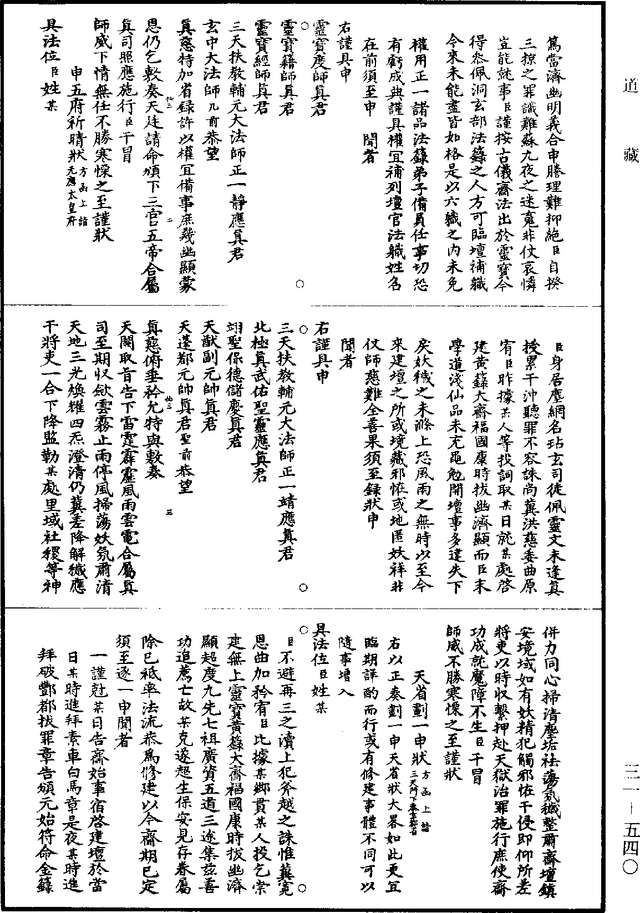 道藏
三一—五四〇
篤當濟幽明義合申勝理難抑絶臣自揆
三掠之罪識難蘇九夜之迷寃非仗哀憐
豈能就事臣謹按古儀齋法出於靈寳今
得叅佩洞玄部法籙之人方可臨壇補職
今來未能盡皆如格是以六職之内未免
權用正一諸品法籙弟子備員任事切恐
有虧成典謹具權冝補列壇官法職姓名
在前須至申　聞者
右謹具申
靈寳度師真君
靈寳籍師真君
靈寳經師真君
三天扶教輔元大法師正一靜應真君
玄中大法師几前恭望
真慈特加省録許以權冝備事庶幾幽顯蒙
恩仍乞敷奏天廷請命頒下三官五帝合屬
真司照應施行臣干冒
師威下情無任不勝寒慄之至謹狀
申五府祈晴狀方函上詣元應太皇府
具法位臣姓某
臣身居塵網名玷玄司徒佩靈文未逢真
授累干沖聽罪不容誅尚冀洪慈委曲原
宥臣昨據某人等投詞取某日就某處啓
建黄籙大齋福國康時拔幽濟顯而臣末
學道淺仙品未充黽勉開壇事多違失下
矣妖穢之未滌上恐風雨之無時以至今
來建壇之所或境藏邪恠或地匿妖祥非
仗師慈難全善果須至録狀申
聞者
右謹具申
三天扶教輔元大法師正一靖應真君
北極真武佑聖靈應真君
翊聖保德儲慶真君
天猷副元帥真君
天蓬都元帥真君聖前恭望
真慈俯垂矜允特與敷奏
天闕取旨告下雷霆霹靂風雨雲電合屬真
司至期收歛雲霧止雨停風掃蕩妖氛肅清
天地三光煥耀四炁澄清仍冀差降解穢應
干將吏一合下降監勒某處里域社稷等神
併力同心掃清塵垢祛蕩氛穢整肅齋壇鎮
安境域如有妖精犯觸邪恠干侵即仰所差
將吏以時收繫押赴天獄治罪施行庶使齋
功成就魔障不生臣干冒
師威不勝寒慄之至謹狀
天省劄一申狀方函上詣
右以正奏劄一申天省狀大畧如此更冝
臨期詳酌而行或有修建事體不同可以
隨事增入
具法位臣姓某
臣不避再三之瀆上犯斧越之誅惟冀寛
恩曲加矜宥臣比據某鄉貫某人投乞崇
建無上靈寳黄籙大齋福國康時拔幽濟
顯超度九先七祖廣資五道三途集兹善
功追薦亡故某克遂超生保安見存眷屬
除已袛率法流恭爲修建以今齋期已定
須至逐一申聞者
一謹尅某日告齋始事宿啓建壇於當
日某時進拜素車白馬章是夜某時進
拜破酆都拔罪章告頒元始符命金籙